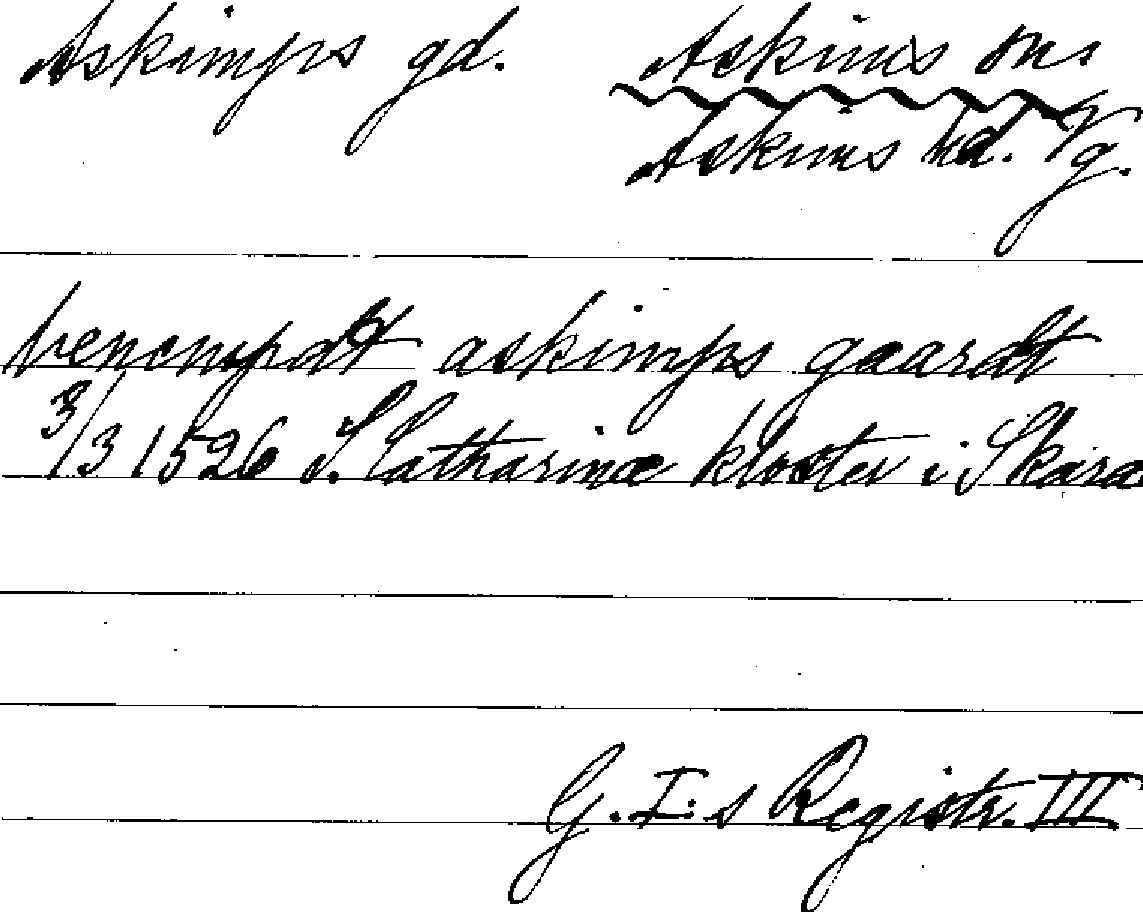 Askimps gd.
Askims sn.
Askims hd. Vg.
benempdt askimps gaardt
3/3 1526 S. Catharinæ kloster i Skara
G. I:s Registr. III